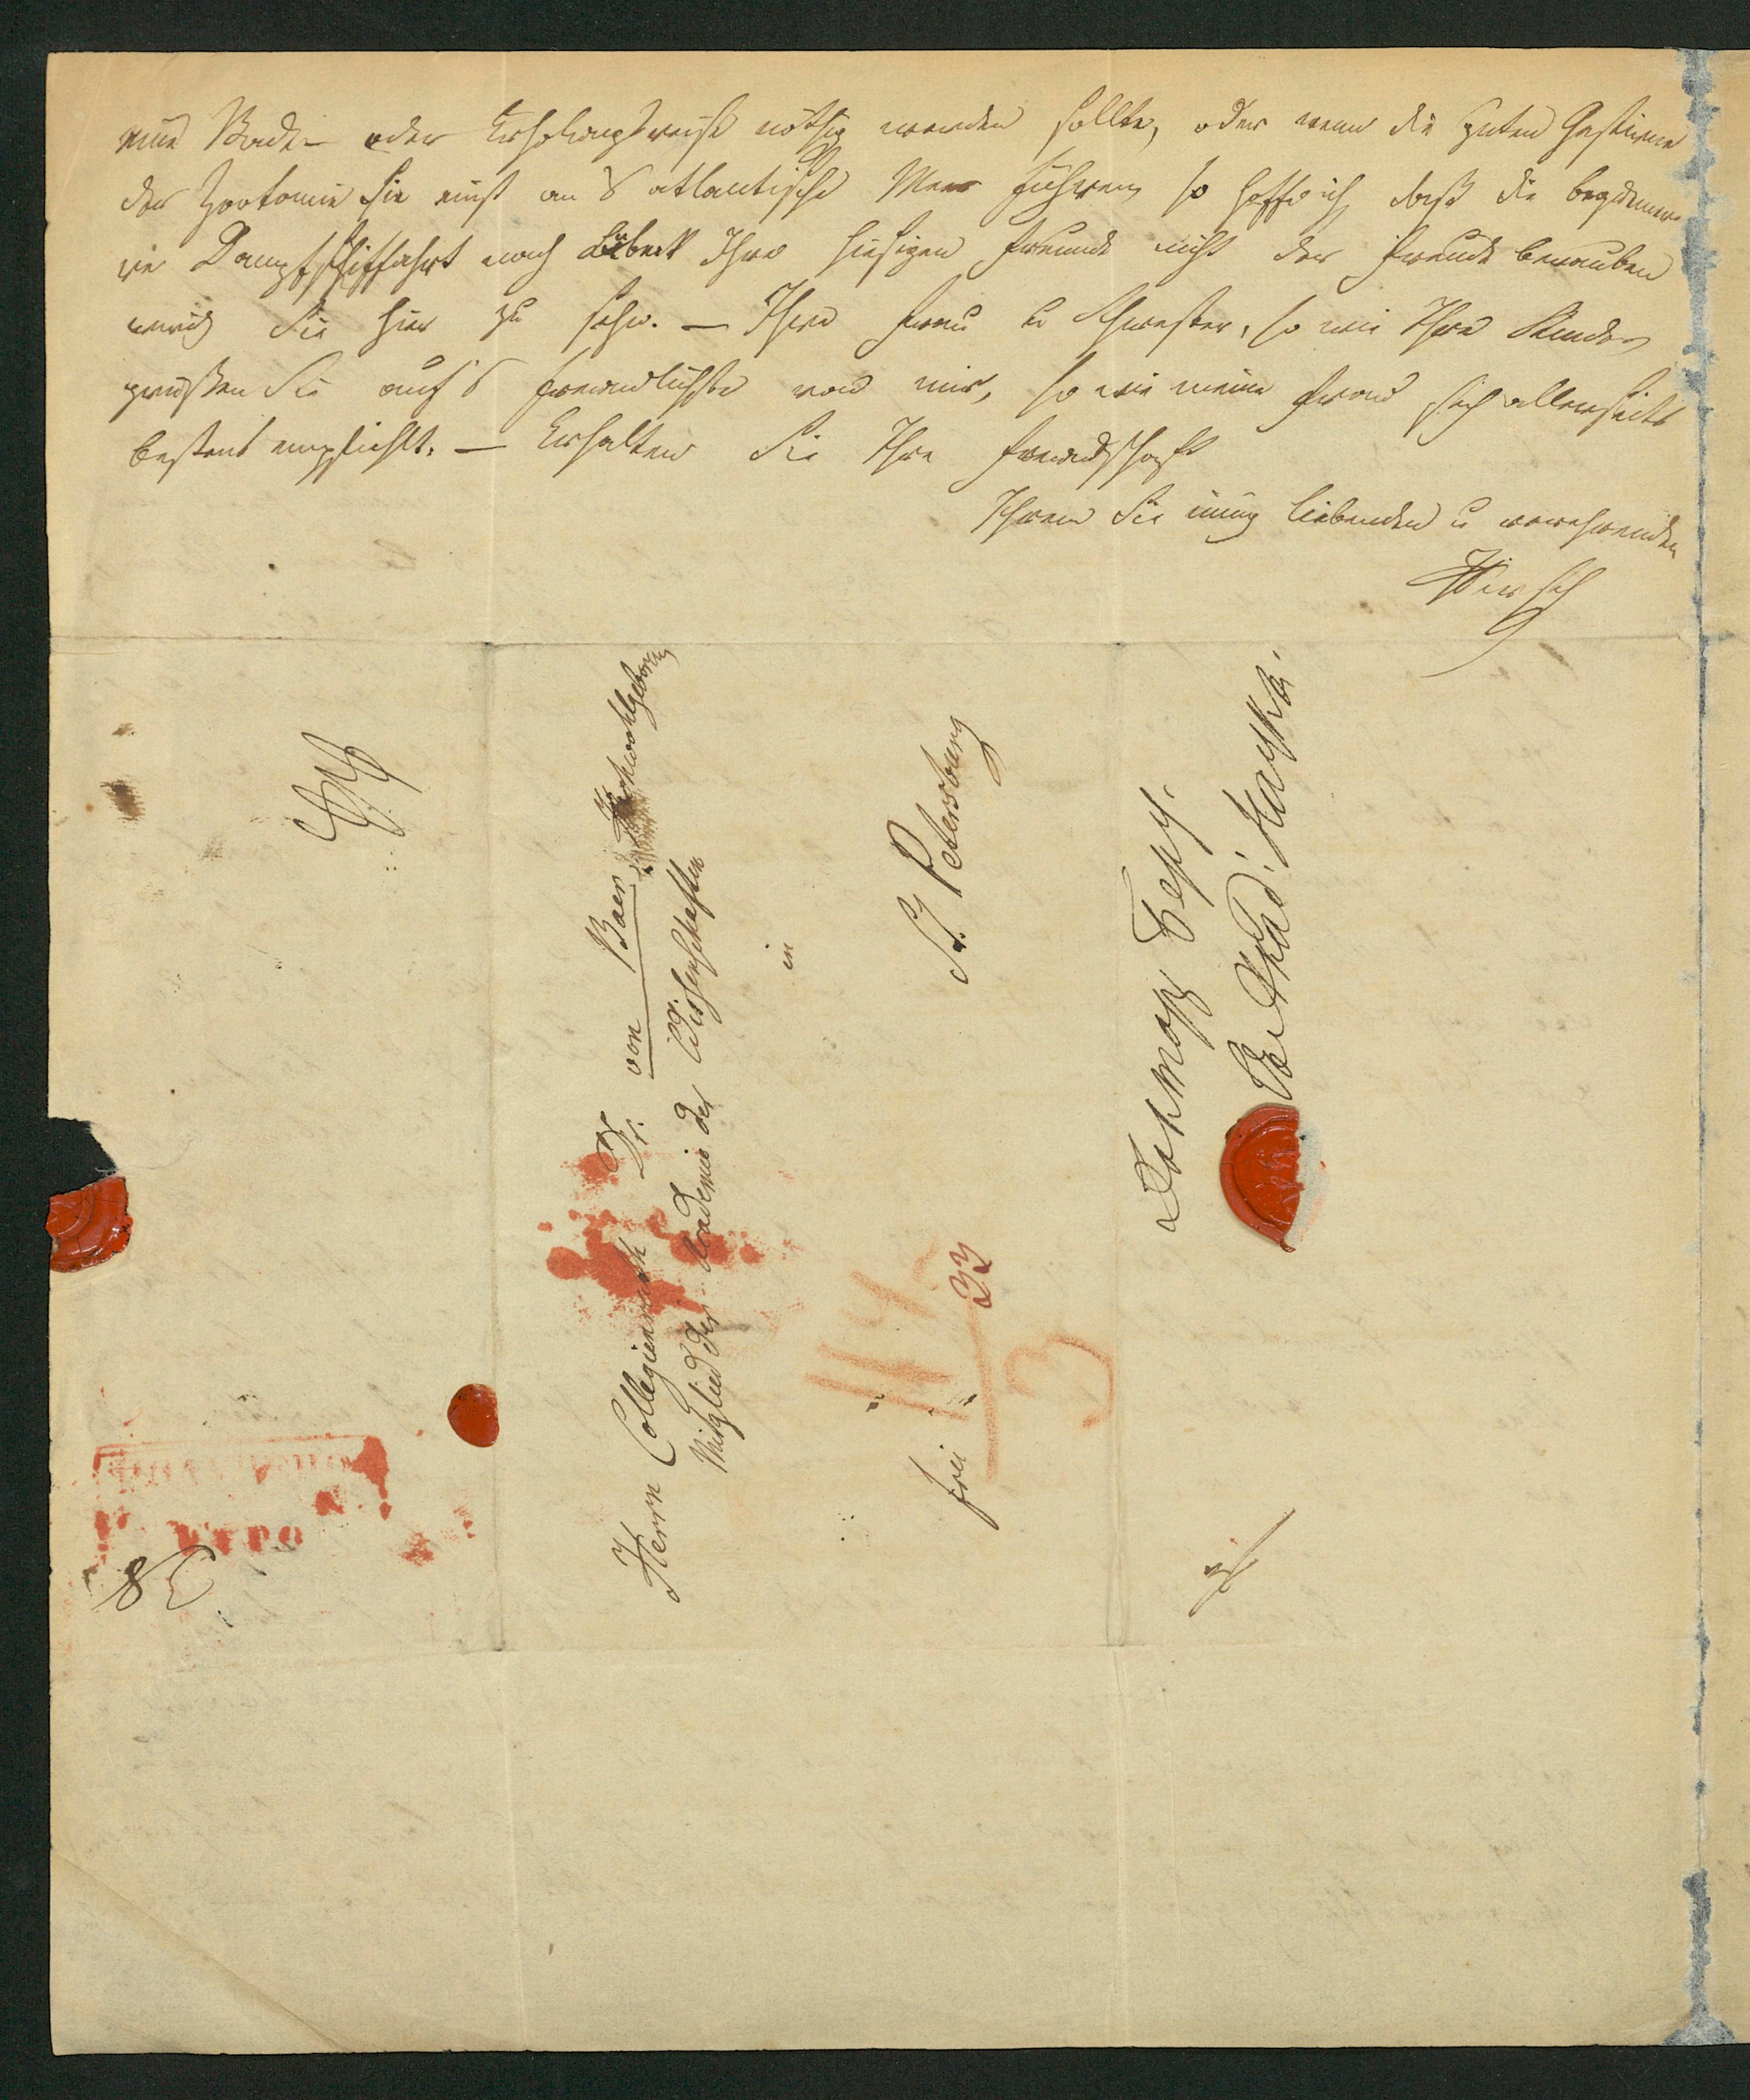 eine Bade- oder Erholungsreise nöthig werden sollte, oder wenn die guten Gestirne
der Zootomie Sie einst an's atlantische Meer führen, so hoffe ich, daß die bequemere
Dampfschiffahrt nach Lübeck Ihre hiesigen Freunde nicht der Freude berauben
wird Sie hier zu sehn. — Ihre Frau u Schwester, so wie Ihre Kinder
grüßen Sie auf's freundlichste von mir, so wie meine Frau sich allerseits
bestens empfiehlt. — Erhalten Sie Ihre Freundschaft
Ihrem Sie innig liebenden u verehrenden
Hirsch
Herrn Collegienrath Dr. von Baer Hochwohlgeboren
Mitglied der Academie der Wissenschaften
in
St. Petersburg
frei
33
3
Доктору Беру.
Въ Акад. Наукъ.
8